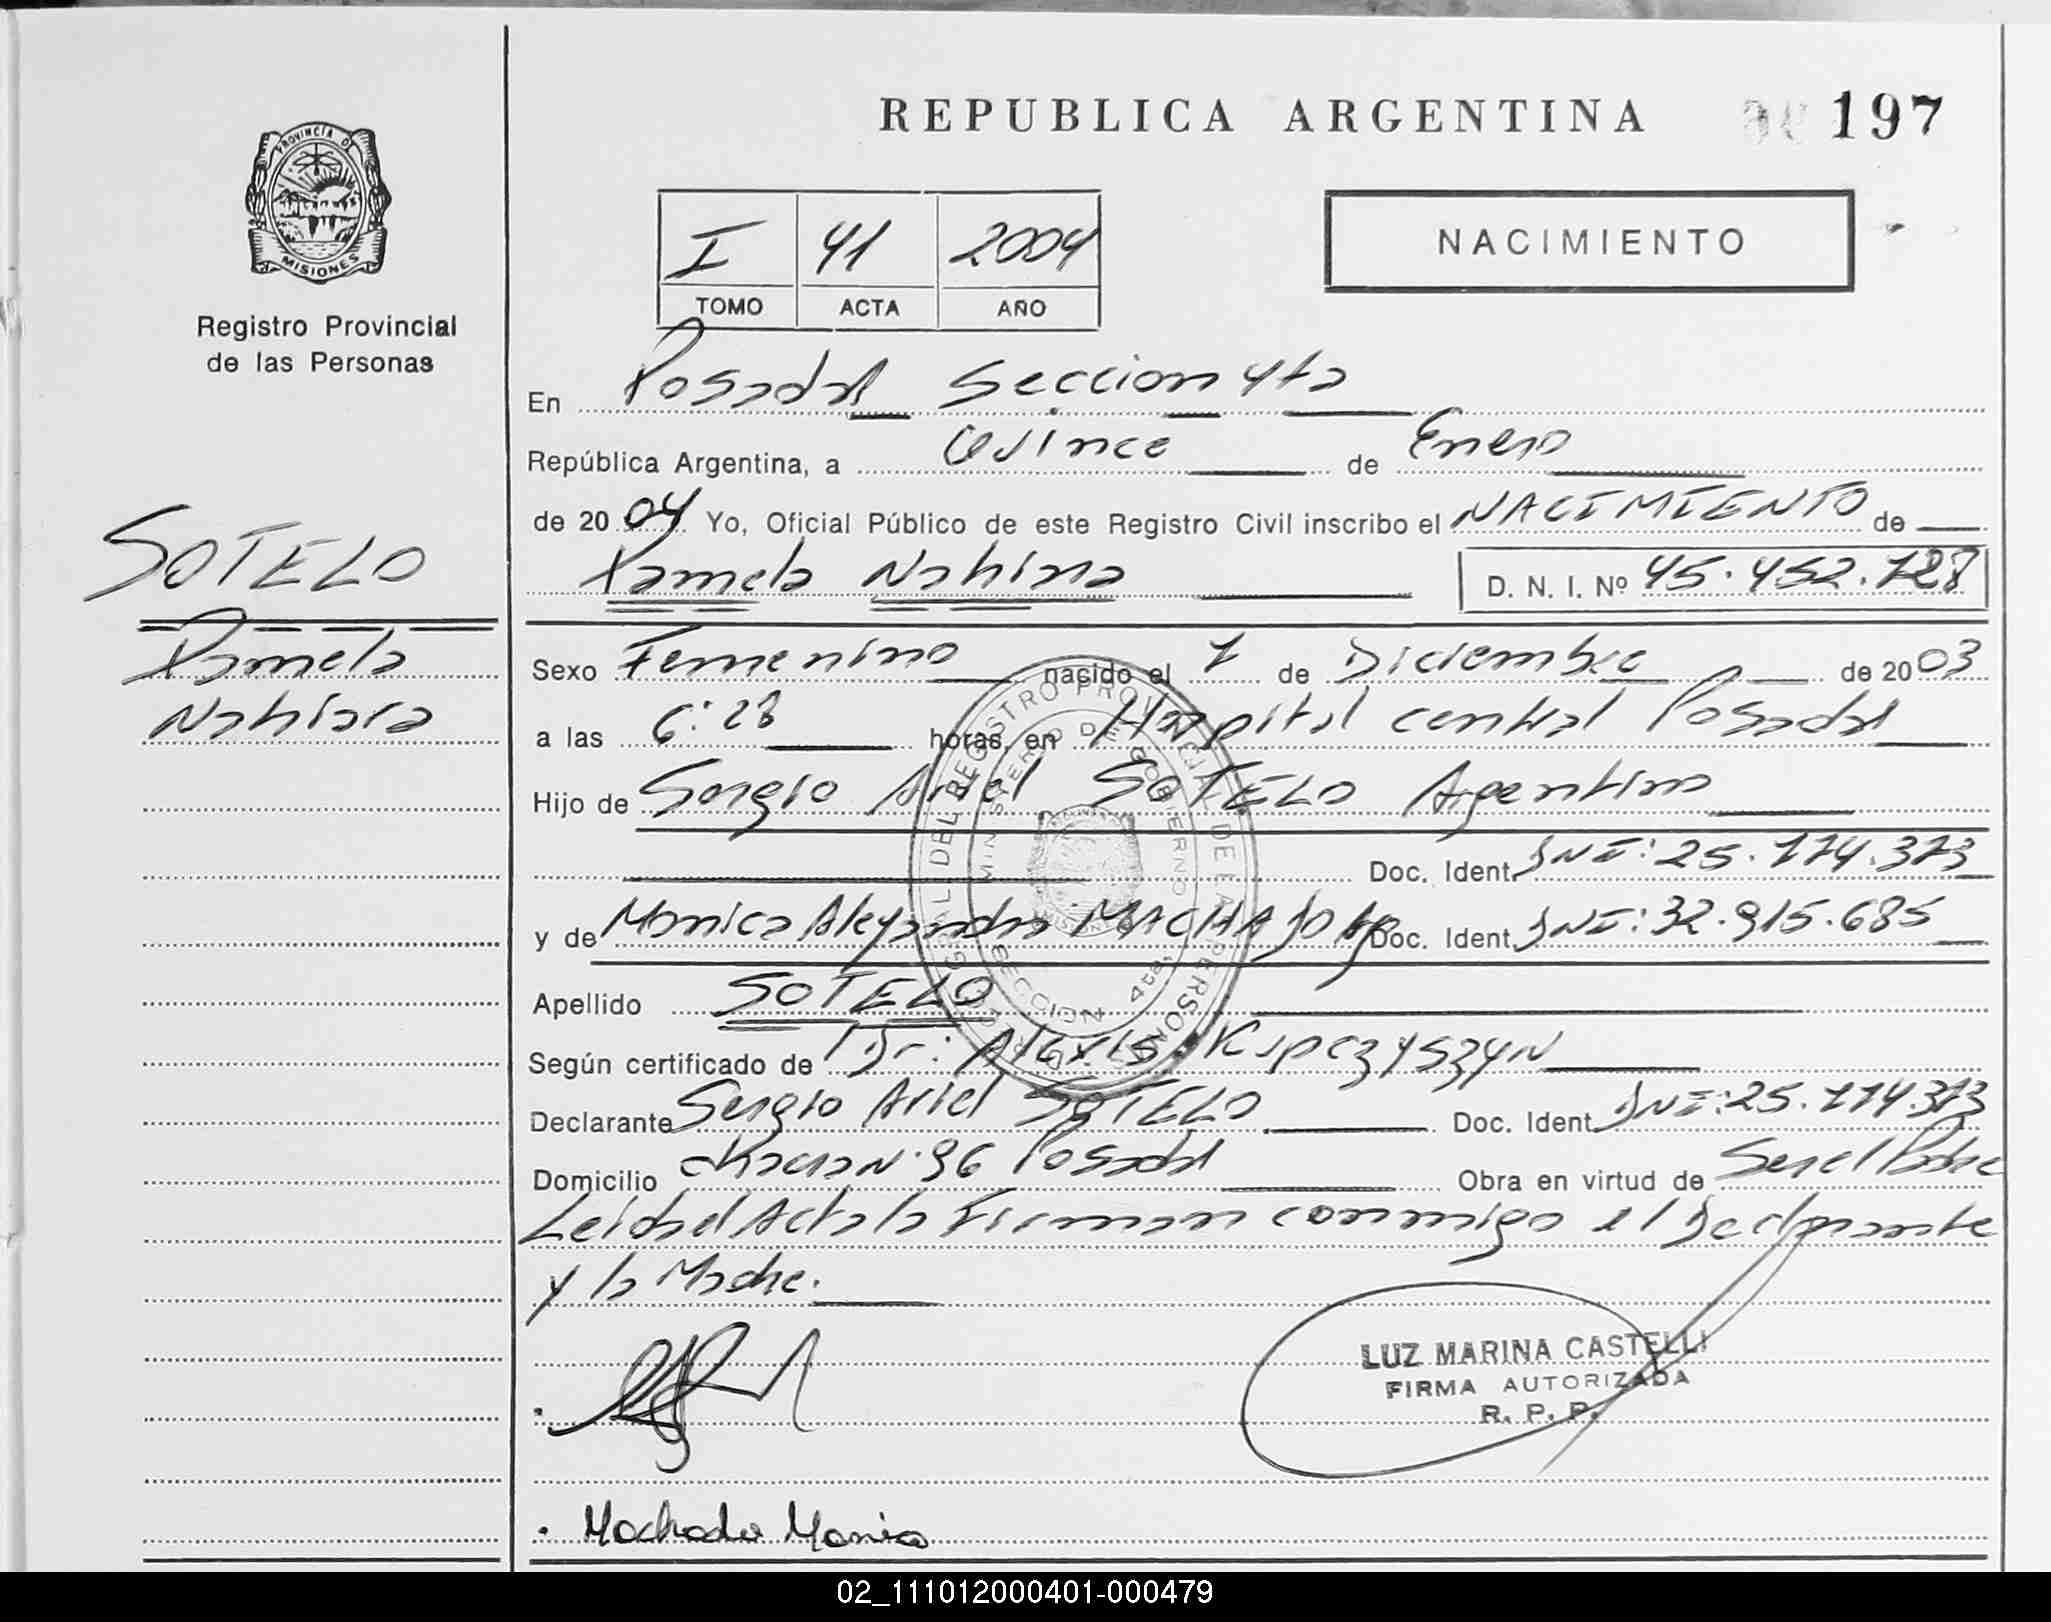 REPUBLICA ARGENTINA 197
PROVINCIA DE
MISIONES
Registro Provincial
de las Personas
I 41 2004
TOMO ACTA AÑO
NACIMIENTO
En Posadas Seccion 4ta
República Argentina, a Quince de Enero
de 2004 Yo, Oficial Público de este Registro Civil inscribo el NACIMIENTO de
Pamela Nahiara D. N. I. Nº 45.452.128
SOTELO
Pamela
Nahiara
Sexo Femenino nacido el 1 de Diciembre de 2003
a las 6:28 horas, en Hospital central Posadas
Hijo de Sergio Ariel SOTELO Argentino
Doc. Ident. DNI: 25.174.373
y de Monica Alejandra MACHADO Arg Doc. Ident. DNI: 32.915.685
Apellido SOTELO
Según certificado de Dr: Alexis
Declarante Sergio Ariel SOTELO Doc. Ident. DNI: 25.174.373
Domicilio 96 Posadas Obra en virtud de Ser el Padre
Leida el Acta la Firman conmigo el Declarante
y la Madre.
LUZ MARINA CASTELLI
FIRMA AUTORIZADA
R. P. P.
Machado Monica
MINISTERIO DE GOBIERNO
SECCION 4ta.
02_111012000401-000479